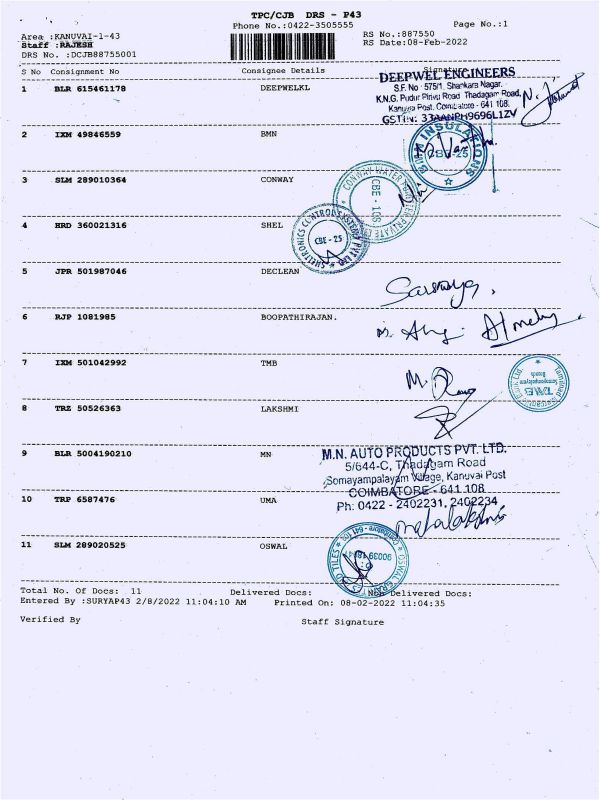 TPC/CJB DRS - P43
Phone No.:0422-3505555
Page No.:1
Area :KANUVAI-1-43
RS No.:887550
Staff :RAJESH
RS Date:08-Feb-2022
DRS No. :DCJB88755001
S No Consignment No Consignee Details Signature
1 BLR 615461178 DEEPWELKL
DEEPWEL ENGINEERS
S.F. No : 575/1, Shankara Nagar,
K.N.G. Pudur Pirivu Road, Thadagam Road,
Kanuvai Post, Coimbatore - 641 108.
GSTIN: 33AANPH9696L1ZV
2 IXM 49846559 BMN
INSULATIONS
CBE-25
3 SLM 289010364 CONWAY
CONWAY WATER PRIVATE
CBE - 108
4 HRD 360021316 SHEL
SHELTRONICS CONTROL SYSTEMS PVT LTD
CBE - 25
5 JPR 501987046 DECLEAN
6 RJP 1081985 BOOPATHIRAJAN.
7 IXM 501042992 TMB
Tamilnad Bank Ltd.
TMB
Somayampalayam
Branch
8 TRZ 50526363 LAKSHMI
9 BLR 5004190210 MN
M.N. AUTO PRODUCTS PVT. LTD.
5/644-C, Thadagam Road
Somayampalayam Village, Kanuvai Post
COIMBATORE - 641 108
Ph: 0422 - 2402231, 2402234
10 TRP 6587476 UMA
mahalakshmi
11 SLM 289020525 OSWAL
OSWAL TILES
Coimbatore - 641 108
Total No. Of Docs: 11 Delivered Docs: Non Delivered Docs:
Entered By :SURYAP43 2/8/2022 11:04:10 AM Printed On: 08-02-2022 11:04:35
Verified By Staff Signature